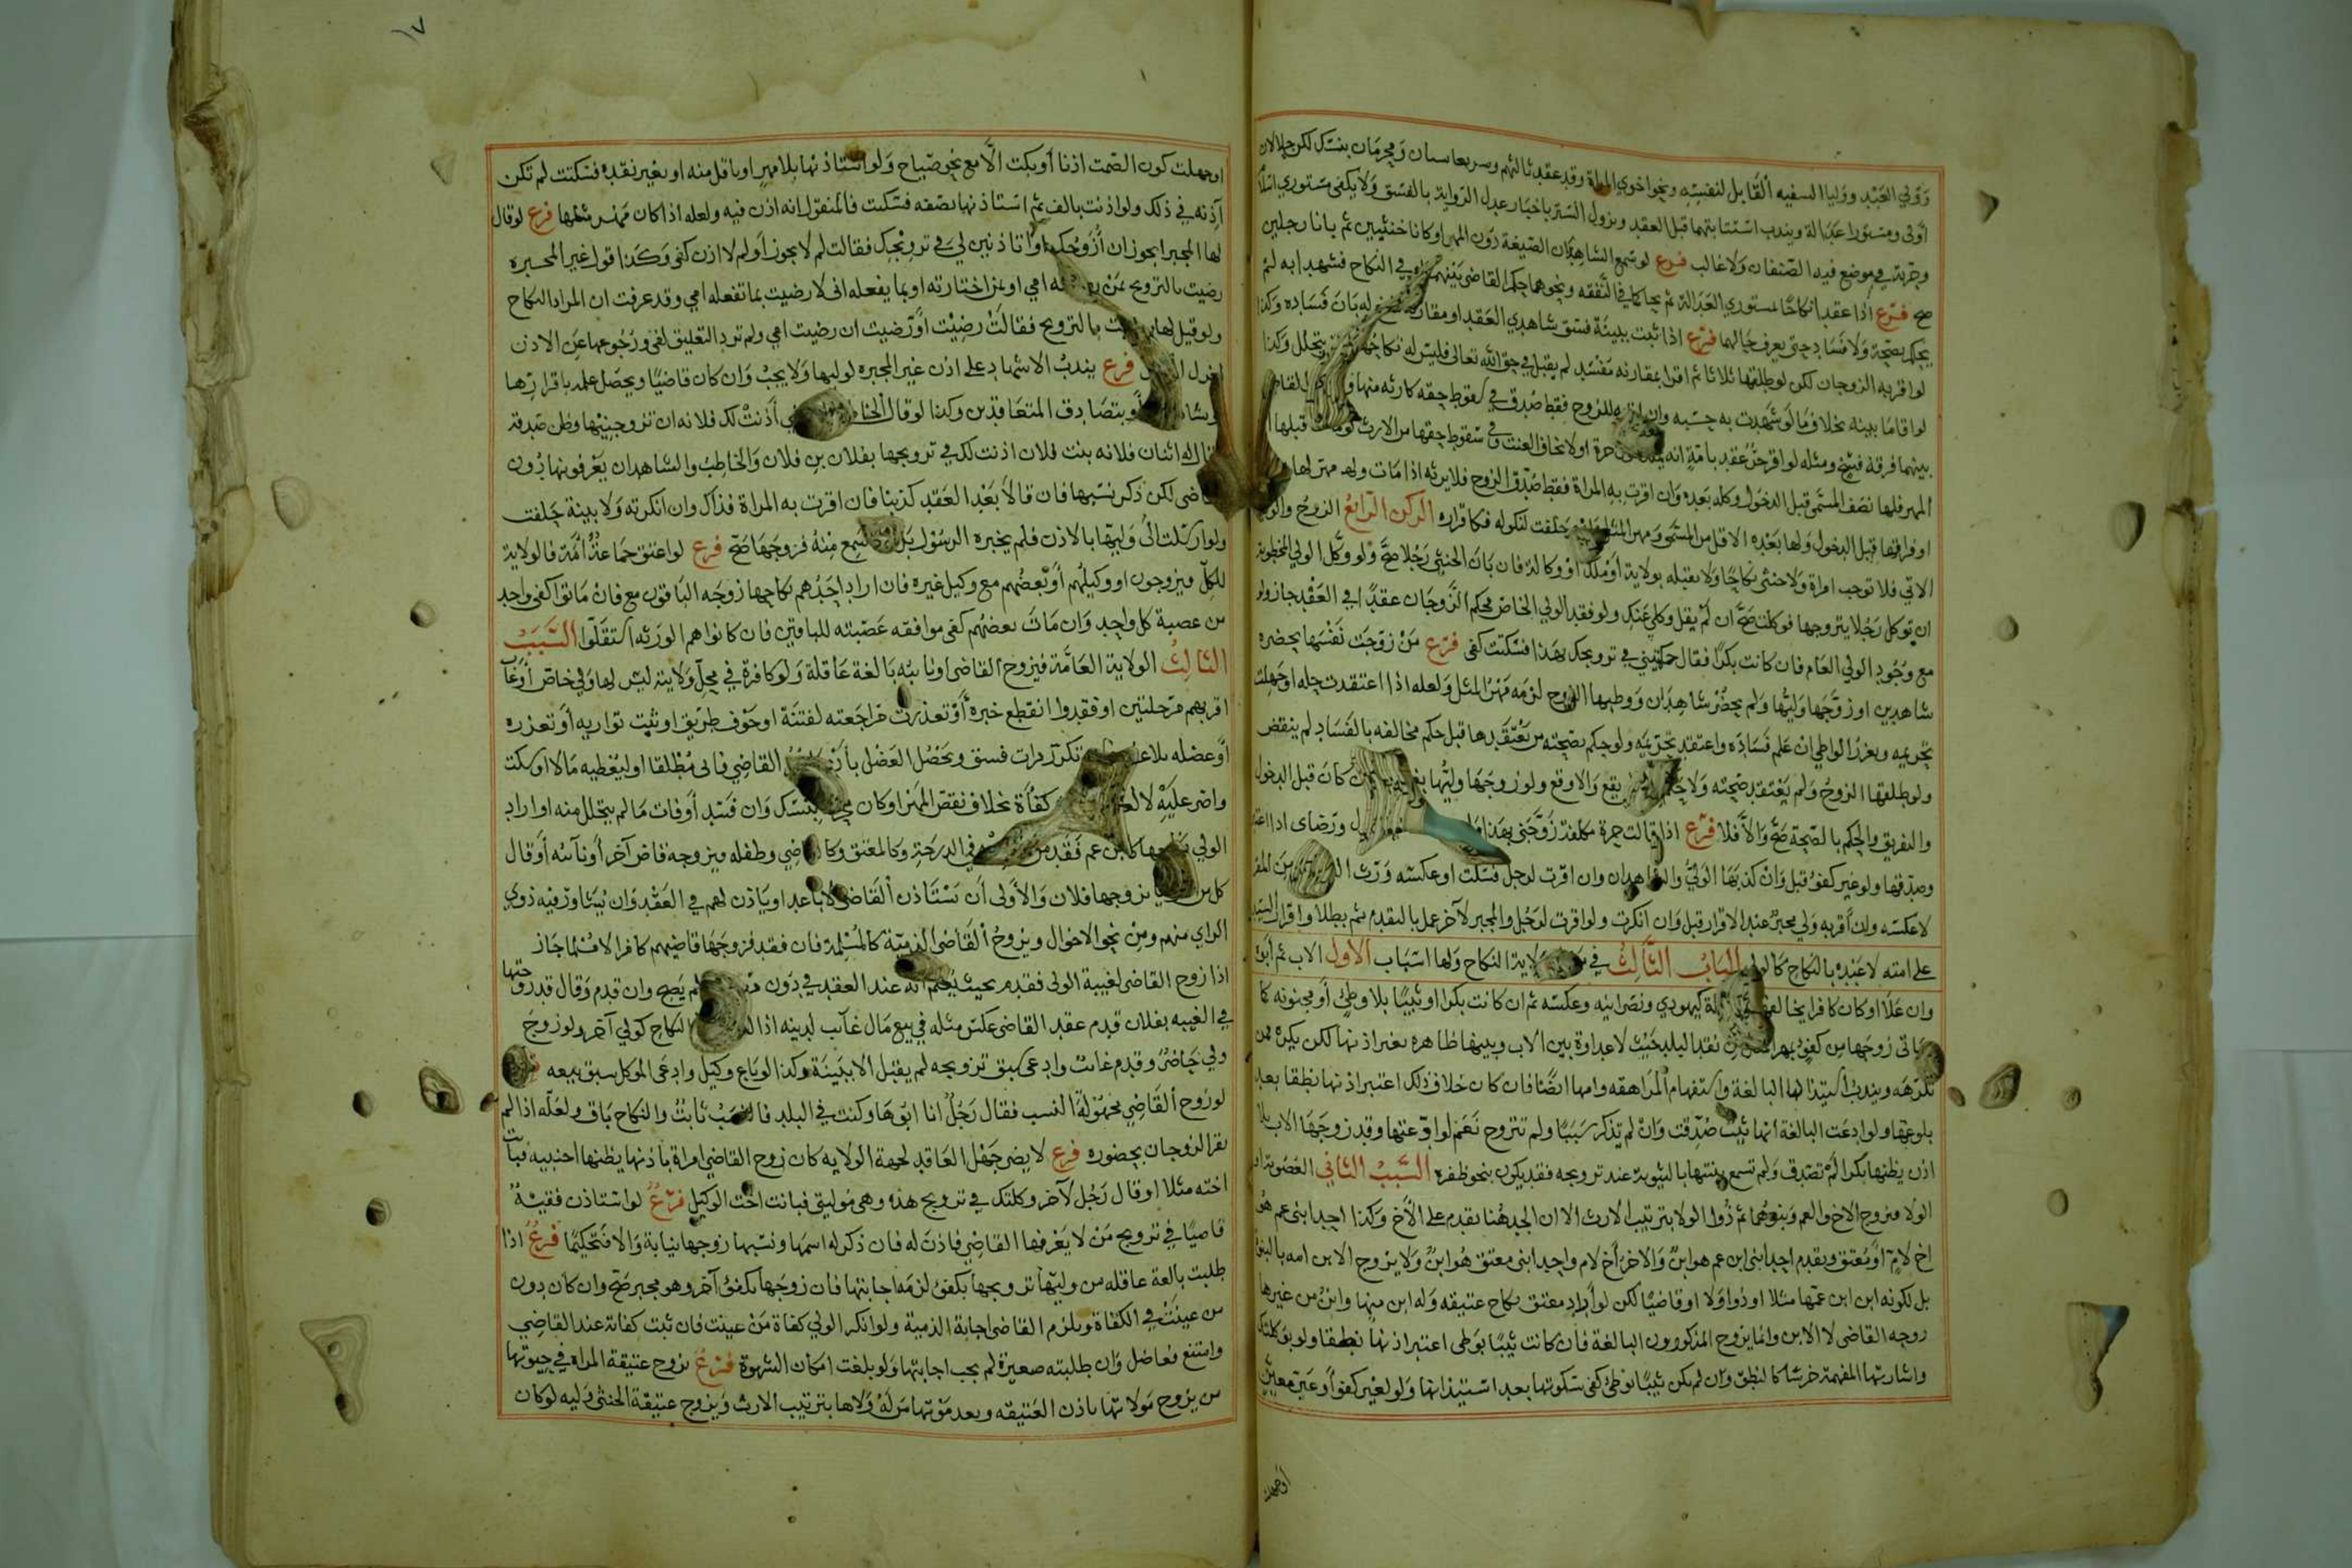 وولي العبد ووليا السفيه القابل لنفسه ونحو اخوي المراة وقد عقد ثالثهم ومحرمان بنسك لكن حلالان
اولى ومستورا عدالة ويندب استتابتهما قبل العقد ويزول الستر باخبار عدل الرواية بالفسق ولا يكفى مستوري اسلام
وحرية في موضع فيه الصنفان ولا غالب فرع لو سمع الشاهدان الصيغة دون المهر او كانا خنثيين ثم بانا رجلين
صح فرع اذا عقدا نكاحا بمستوري العدالة ثم تحاكما في النفقة ونحوهما حكم القاضي بينهما في النكاح فشهدا به لم
يحكم بصحة ولا فساد حتى يعرف حالهما فرع اذا ثبت ببينة فسق شاهدي العقد او مقارنة له بان فساده وكذا
لو اقر به الزوجان لكن لو طلقها ثلاثا ثم اقرا بمقارنة مفسد لم يقبل في حق الله تعالى فليس له نكاحها بتحلل وكذا
لو اقاما بينه بخلاف ما لو شهدت به حسبه وان للزوج فقط صدق في سقوط حقه كارثه منها
بينهما فرقة فسخ ومثله لو اقر حر عقد بامة انه حرة او لا نخاف العنت وفي سقوط حقها من الارث قبلها
المهر فلها نصف المسمى قبل الدخول وكله بعده وان اقرت به المراة فقط صدق الزوج فلا يرثه اذا مات ولا مهر لها
او فراقها قبل الدخول ولها بعده الاقل من المسمى ومهر المثل حلفت لنكوله فكاقراره الركن الرابع الزوج والولي
الاتي فلا توجب امراة ولا خنثى نكاحا ولا بقبله بولاية او ملك او وكالة فان بان الخنثى رجلا صح ولو وكل الولي المخطوبة
ان توكل رجلا يتزوجها فوكلت صح ان لم يقل وكلي عنك ولو فقد الولي الخاص فحكم الزوجان عقدا في العقد جاز ولو
مع وجود الولي العام فان كانت بكرا فقال حكمتيني في تزويجك بهذا فسكتت كفى فرع من زوجت نفسها بحضرة
شاهدين او زوجها وليها ولم يحضر شاهدان ووطيها الزوج لزمه مهر المثل ولعله اذا اعتقدت حله او جهلت
تحريمه ويعزر الواطي ان علم فساده واعتقد تحريمه ولو حكم بصحته من يعتقدها قبل حكم مخالفه بالفساد لم ينقض
ولو طلقها الزوج ولم يعتقد صحته ولا يقع والا وقع ولو زوجها وليها كان قبل الدخول
والتفريق والحكم بالصحة صح والا فلا فرع اذا قالت حرة مكلفة زوجني بهذا ورضاي اذا
وصدقها ولو غير كفؤ قبل وان كذبها الولي والشاهدان وان اقرت لرجل فسكت او عكسه ورث
لا عكسه وان اقر به ولي مجبر عند الاقرار قبل وان انكرت ولو اقرت لرجل والمجبر لآخر عمل بالمقدم ثم بطلا واقرار السيد
على امته لا عبده بالنكاح كالولي الباب الثالث في ولاية النكاح ولها اسباب الاول الاب ثم ابوه
وان علا او كان كافرا يخالف ملة كيهودي ونصرانيه وعكسه ثم ان كانت بكرا او ثيبا بلا وطئ او مجنونة كما
ياتي زوجها من كفؤ بمهر نقد البلد بحيث لا عداوة بين الاب وبينها ظاهره بغير اذنها لكن يكره ممن
تكرهه ويندب استيذانها البالغة واستفهام المراهقه وامها ايضا فان كان خلاف ذلك اعتبر اذنها نطقا بعد
بلوغها ولو ادعت البالغة انها ثيب صدقت وان لم تذكر سببا ولم تتزوج نعم لو ادعتها وقد زوجها الاب بلا
اذن يظنها بكرا لم تصدق ولم تسمع بينتها بالثيوبة عند تزويجه فقد يكون بنحو ظفره السبب الثاني العصوبة او
الولا فيزوج الاخ والعم وبنوهما ثم ذوا الولا بترتيب الارث الا ان الجد هنا يقدم على الاخ وكذا احد ابنى عم هو
اخ لام او معتق ويقدم احد ابنى ابن عم هو ابن والاخر اخ لام واحد ابنى معتق هو ابن ولا يزوج الابن امه بالبنوة
بل لكونه ابن ابن عمها مثلا او ذوا ولا او قاضيا لكن لو اراد معتق نكاح عتيقه وله ابن منها وابن من غيرها
زوجه القاضي لا الابن وانما يزوج المذكورون البالغة فان كانت ثيبا بوطى اعتبر اذنها نطقا ولو بوكلتك
واشارتها المفهمة خرسا كالنطق وان لم تكن ثيبا بوطئ كفى سكوتها بعد استيذانها ولو لغير كفؤ او غير معين
او جهلت
او جهلت كون الصمت اذنا او بكت الا مع نحو صياح ولو استاذنها بلا مهر او باقل منه او بغير نقده فسكتت لم تكن
آذنه في ذلك ولو اذنت بالف ثم استاذنها بصفه فسكت فالمنقول انه اذن فيه ولعله اذا كان مهر مثلها فرع لو قال
لها المجبر ايجوز ان ازوجك او اتاذنين لي في تزويجك فقالت لم لا يجوز او لم لا اذن كفى وكذا قول غير المجبره
رضيت بالتزويج بمن امي او بمن اختارته او بما يفعله ابى لا رضيت بما تفعله امي وقد عرفت ان المراد النكاح
ولو قيل لها بالتزويج فقالت رضيت او رضيت ان رضيت امي ولم ترد التعليق لغى ورجوعها عن الاذن
فرع يندب الاشهاد على اذن غير المجبره لوليها ولا يجب وان كان قاضيا ويحصل علمه باقرارها
او بتصادق المتعاقدين وكذا لو قال اذنت لك فلانه ان تزوجنيها وظن صدقه
له اثنان فلانه بنت فلان اذنت لك في تزويجها بفلان بن فلان والخاطب والشاهدان يعرفونها دون
القاضى لكن ذكر نسبها فان قالا بعد العقد كذبنا فان اقرت به المراة فذاك وان انكرته ولا بينة حلفت
ولو ارسلت الى وليها بالاذن فلم يخبره الرسول منه فزوجها صح فرع لو اعتق جماعة امة فالولاية
للكل فيزوجون او وكيلهم او بعضهم مع وكيل غيره فان اراد احدهم نكاحها زوجه الباقون مع فان ماتوا كفى واحد
من عصبة كل واحد وان مات بعضهم كفى موافقه عصبته للباقين فان كانوا هم الورثه استقلوا السبب
الثالث الولاية العامة فيزوج القاضى او نايبه بالغة عاقلة ولو كافرة في محل ولايته ليس لها ولي خاص او غاب
اقربهم مرحلتين او فقدوا انقطع خبره او تعذرت مراجعته لفتنة او خوف طريق او ثبت تواريه او تعززه
او عضله بلا تكرر مرات فسق ويحصل العضل بان القاضي فابى مطلقا او ليعطيه مالا او سكت
واصر عليه لا كفاة بخلاف نقص المهر او كان بنسك وان فسد او فات ما لم يتحلل منه او اراد
الولي كابن عم فقد من في الدرجة وكالمعتق وكالقاضي وطفله فيزوجه قاض آخر او نائبه او قال
كل تزوجها فلان والاولى ان تستاذن القاضى الاباعد او ياذن لهم في العقد وان يشاور فيه ذوي
الراي منهم ومن نحو الاخوال ويزوج القاضى الذمية كالمسلمة فان فقد فزوجها قاضيهم كافر الاقليم جاز
اذا زوج القاضى لغيبة الولى فقدم بحيث يعلم انه عند العقد في دون لم يصح وان قدم وقال قد زوجتها
في الغيبه بفلان قدم عقد القاضى عكس مثله في بيع مال غائب لدينه اذا النكاح كولي آخر ولو زوج
ولي حاضر وقدم غائب وادعى سبق تزويجه لم يقبل الا ببينة وكذا لو باع وكيل وادعى الموكل سبق بيعه
لو زوج القاضي مجهولة النسب فقال رجل انا ابوها وكنت في البلد فالنسب ثابت والنكاح باق ولعله اذا لم
يقر الزوجان بحضوره فرع لا يضر جهل العاقد لجهة الولايه كان زوج القاضى امراة باذنها يظنها اجنبيه فبانت
اخته مثلا او قال رجل لآخر وكلتك في تزويج هذه وهى موليتي فبانت اخت الوكيل فرع لو استاذن فقيه
قاضيا في تزويج من لا يعرفها القاضي فاذن له فان ذكر له اسمها ونسبها زوجها نيابة والا فتحكيما فرع اذا
طلبت بالغة عاقله من وليها تزويجها بكفؤ لزمه اجابتها فان زوجها بكفؤ آخر وهو مجبر صح وان كان دون
من عينت في الكفاة ويلزم القاضى اجابة الذمية ولو انكر الولي كفاة من عينت فان ثبت كفاته عند القاضي
وامتنع فعاضل وان طلبته صغيرة لم يجب اجابتها ولو بلغت امكان الشهوة فرع يزوج عتيقة المراة في حيوتها
من يزوج مولاتها باذن العتيقه وبعد موتها من له ولاها بترتيب الارث ويزوج عتيقة الخنثى وليه لو كان